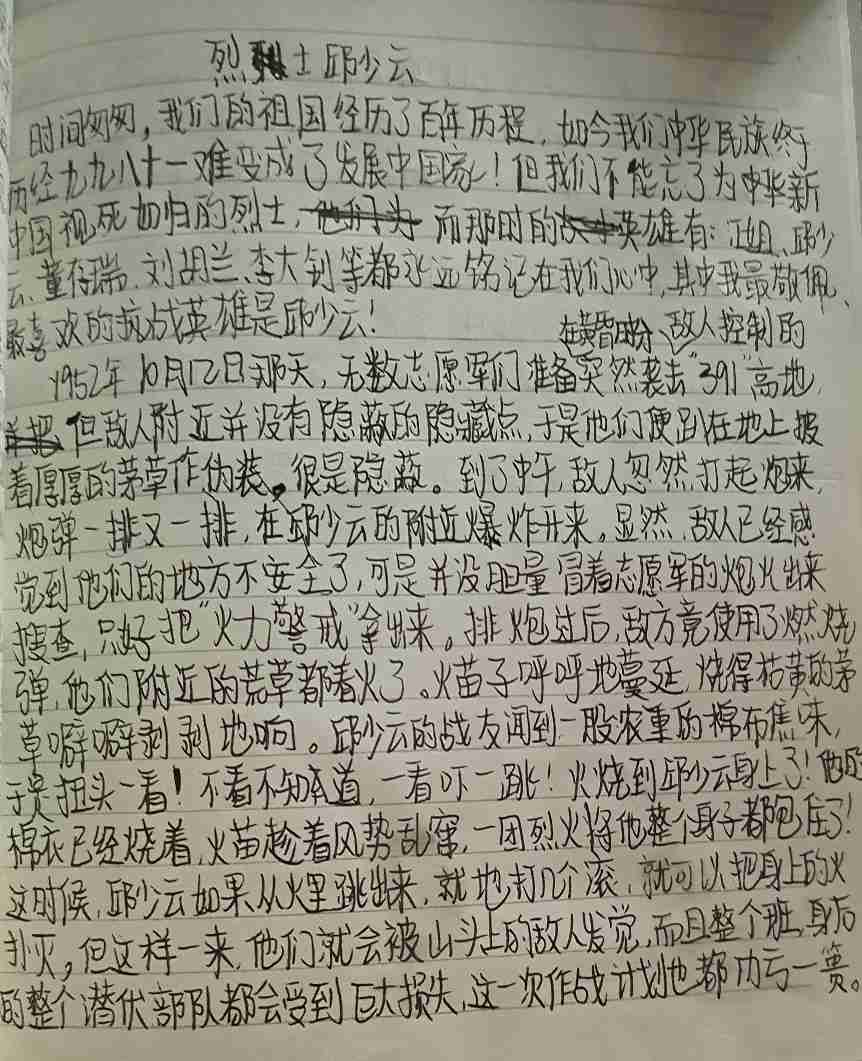 烈士邱少云
时间匆匆，我们的祖国经历了百年历程，如今我们中华民族终于
历经九九八十一难变成了发展中国家！但我们不能忘了为中华新
中国视死如归的烈士，他们为 而那时的英雄有：江姐、邱少
云、董存瑞、刘胡兰、李大钊等都永远铭记在我们心中，其中我最敬佩、
最喜欢的抗战英雄是邱少云！
在黄昏时分、敌人控制的
1952年10月12日那天，无数志愿军们准备突然袭击“391”高地，
并把但敌人附近并没有隐蔽的隐藏点，于是他们便趴在地上披
着厚厚的茅草作伪装，很是隐蔽。到了中午，敌人忽然打起炮来，
炮弹一排又一排，在邱少云的附近爆炸开来。显然，敌人已经感
觉到他们的地方不安全了，可是并没胆量冒着志愿军的炮火出来
搜查，只好把“火力警戒”拿出来。排炮过后，敌方竟使用了燃烧
弹，他们附近的荒草都着火了。火苗子呼呼地蔓延，烧得枯黄的茅
草噼噼剥剥地响。邱少云的战友闻到一股浓重的棉布焦味，
于是扭头一看！不看不知道，一看吓一跳！火烧到邱少云身上了！他的
棉衣已经烧着，火苗趁着风势乱窜，一团烈火将他整个身子都包住了！
这时候，邱少云如果从火里跳出来，就地打几个滚，就可以把身上的火
扑灭，但这样一来，他们就会被山头上的敌人发觉，而且整个班，身后
的整个潜伏部队都会受到巨大损失，这一次作战计划也都功亏一篑。